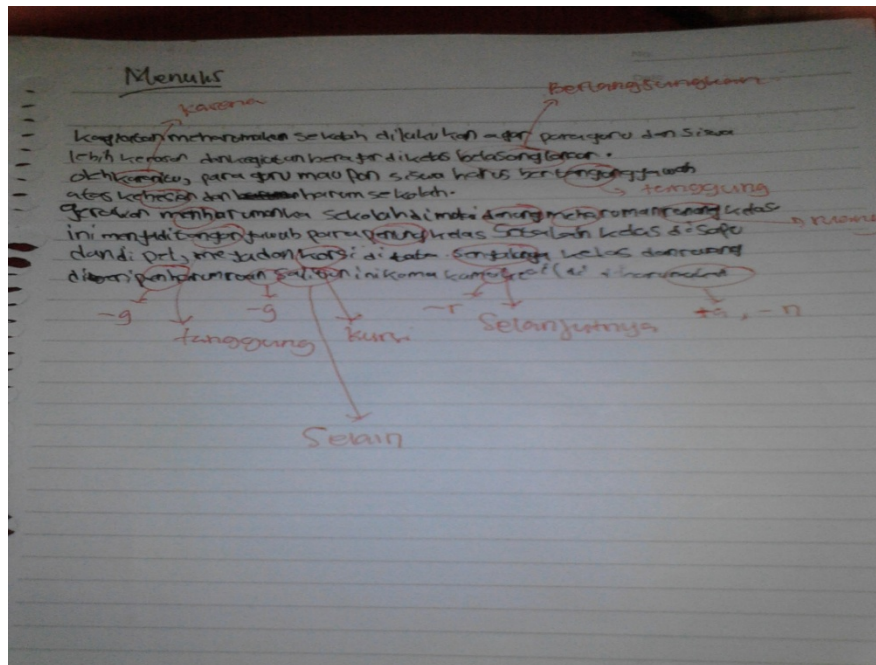 Menulis
karena
Berlangsungkan
kegiatan meharumakan sekolah dilakukan agar para guru dan siswa
lebih kerasan dan kegiatan berajar dikelas belasong lancar.
oleh karenitu, para guru mau pon siswa harus ber tangung jawab
atas kebersian dan harum sekolah.
tanggung
gerakan menharumankan sekolah di mulai ruang kelas
ruang
ini menjadi tangon jawab para kelas Setalah kelas di Sapu
dan di pel, meja dan korsi di tata kelas dan ruang
di beri penharum ruan ini kama
-g
-g
-r
Selanjutnya
+a, -n
tanggung
kursi
Selain